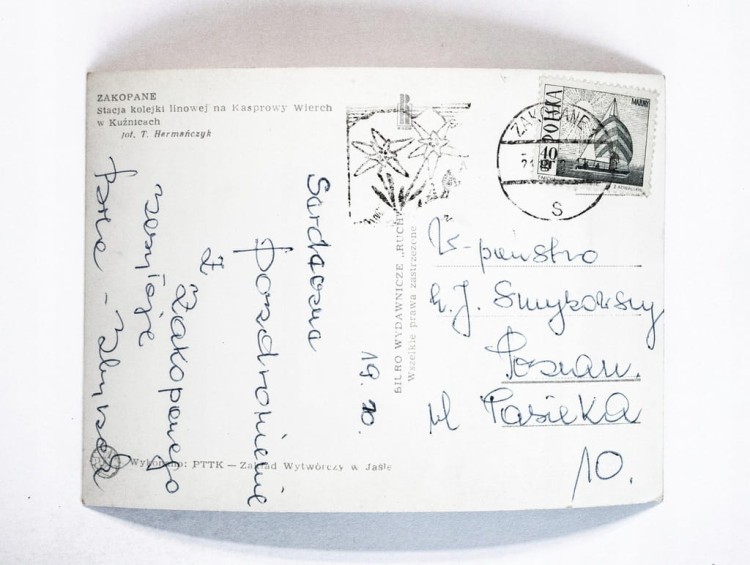 ZAKOPANE
Stacja kolejki linowej na Kasprowy Wierch
w Kuźnicach
fot. T. Hermańczyk
POLSKA
40 gr
ZAKOPANE
S
Serdeczne
pozdrowienie
z
Zakopanego
19.
BIURO WYDAWNICZE „RUCH"
Wszelkie prawa zastrzeżone
państwo
J. Smykowscy
Poznań.
ul Pasieka
10.
Wykonano: PTTK — Zakład Wytwórczy w Jaśle